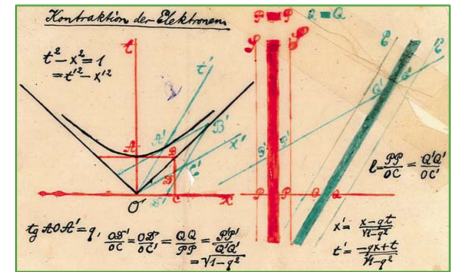 Kontraktion der Elektronen.
P P Q = Q
t² - x² = 1
= t'² - x'²
t
t'
A
A'
B
B'
x'
D
D'
C
C'
O
x
P' P'
Q' Q'
P P Q Q
l = PP/OC = Q'Q'/OC'
tg AOA' = q, OD'/OC = OD/OC' = QQ/PP = P'P'/Q'Q'
= √1-q²
x' = x-qt/√1-q²
t' = -qx+t/√1-q²